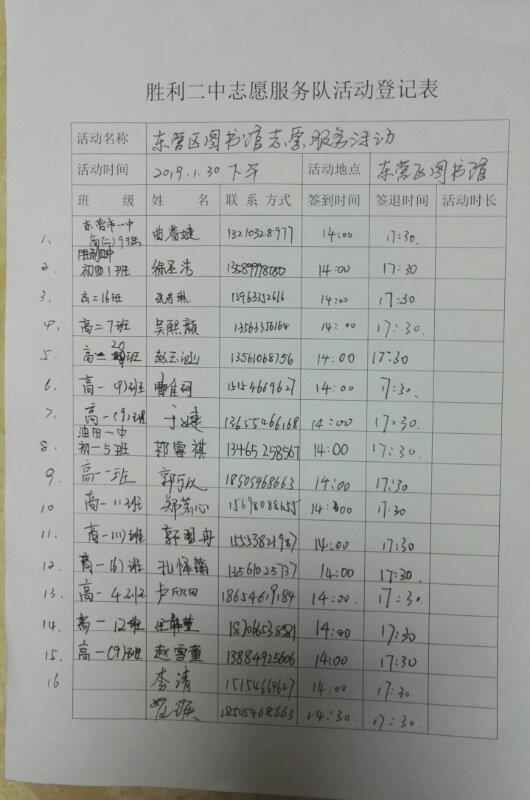 胜利二中志愿服务队活动登记表
活动名称 东营区图书馆志愿服务活动
活动时间 2019.1.30.下午 活动地点 东营区图书馆
班 级 姓 名 联系方式 签到时间 签退时间 活动时长
1. 东营市一中
高(二)9班 曲春婕 13210328977 14:00 17:30.
胜利四中
2. 初四1班 徐圣浩 14:00 17:30
3. 高二16班 14:00 17:30
4. 高二7班 吴熙颜 13563356164 14:00 17:30.
5. 高二20班 13561068756 14:00 17:30
6. 高一(9)班 15154669627 14:00 17:30.
7. 高一(9)班 于婕 13655466168 14:00 17:30
油田一中
8. 初一5班 郭睿祺 13465258567 14:00 17:30.
9. 高一一班 18505468663 14:00 17:30
10 高一11班 郑茗心 15698088655 14:00 17:30
11. 高一(11)班 15553821987 14:00 17:30
12. 高一(6)班 孔怿菡 13561025737 14:00 17:30.
13. 高一 卢欣田 18654619184 14:00 17:30.
14. 高一12班 14:00 17:30
15. 高一(9)班 赵雪童 13884925606 14:00 17:30
16 李清 15154669627 14:00 17:30
18505468663 14:30. 17:30.